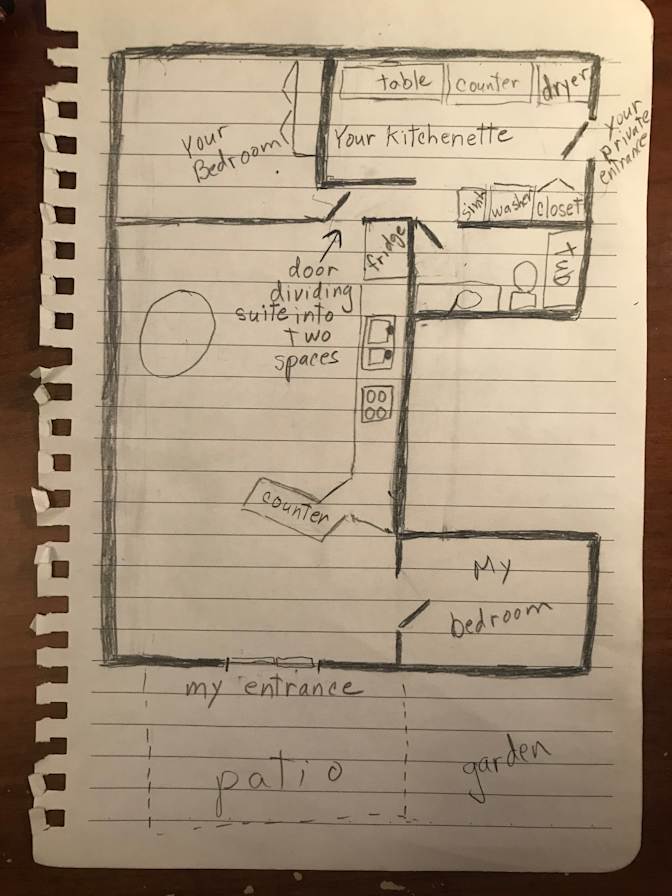 table
counter
dryer
Your
Bedroom
Your kitchenette
your
private
entrance
sink
washer
closet
fridge
door
dividing
suite into
two
spaces
counter
My
bedroom
my entrance
patio
garden